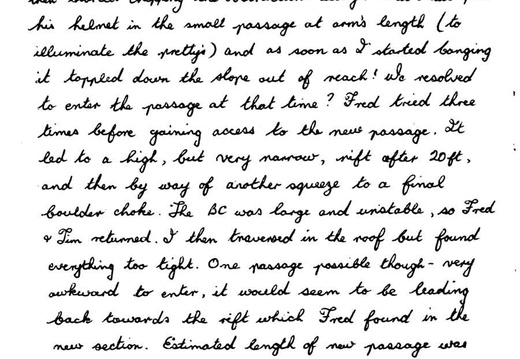 his helmet in the small passage at arm's length (to
illuminate the prettys) and as soon as I started banging
it toppled down the slope out of reach! We resolved
to enter the passage at that time? Fred tried three
times before gaining access to the new passage. It
led to a high, but very narrow, rift after 20ft,
and then by way of another squeeze to a final
boulder choke. The BC was large and unstable, so Fred
& Tim returned. I then traversed in the roof but found
everything too tight. One passage possible though - very
awkward to enter, it would seem to be leading
back towards the rift which Fred found in the
new section. Estimated length of new passage was